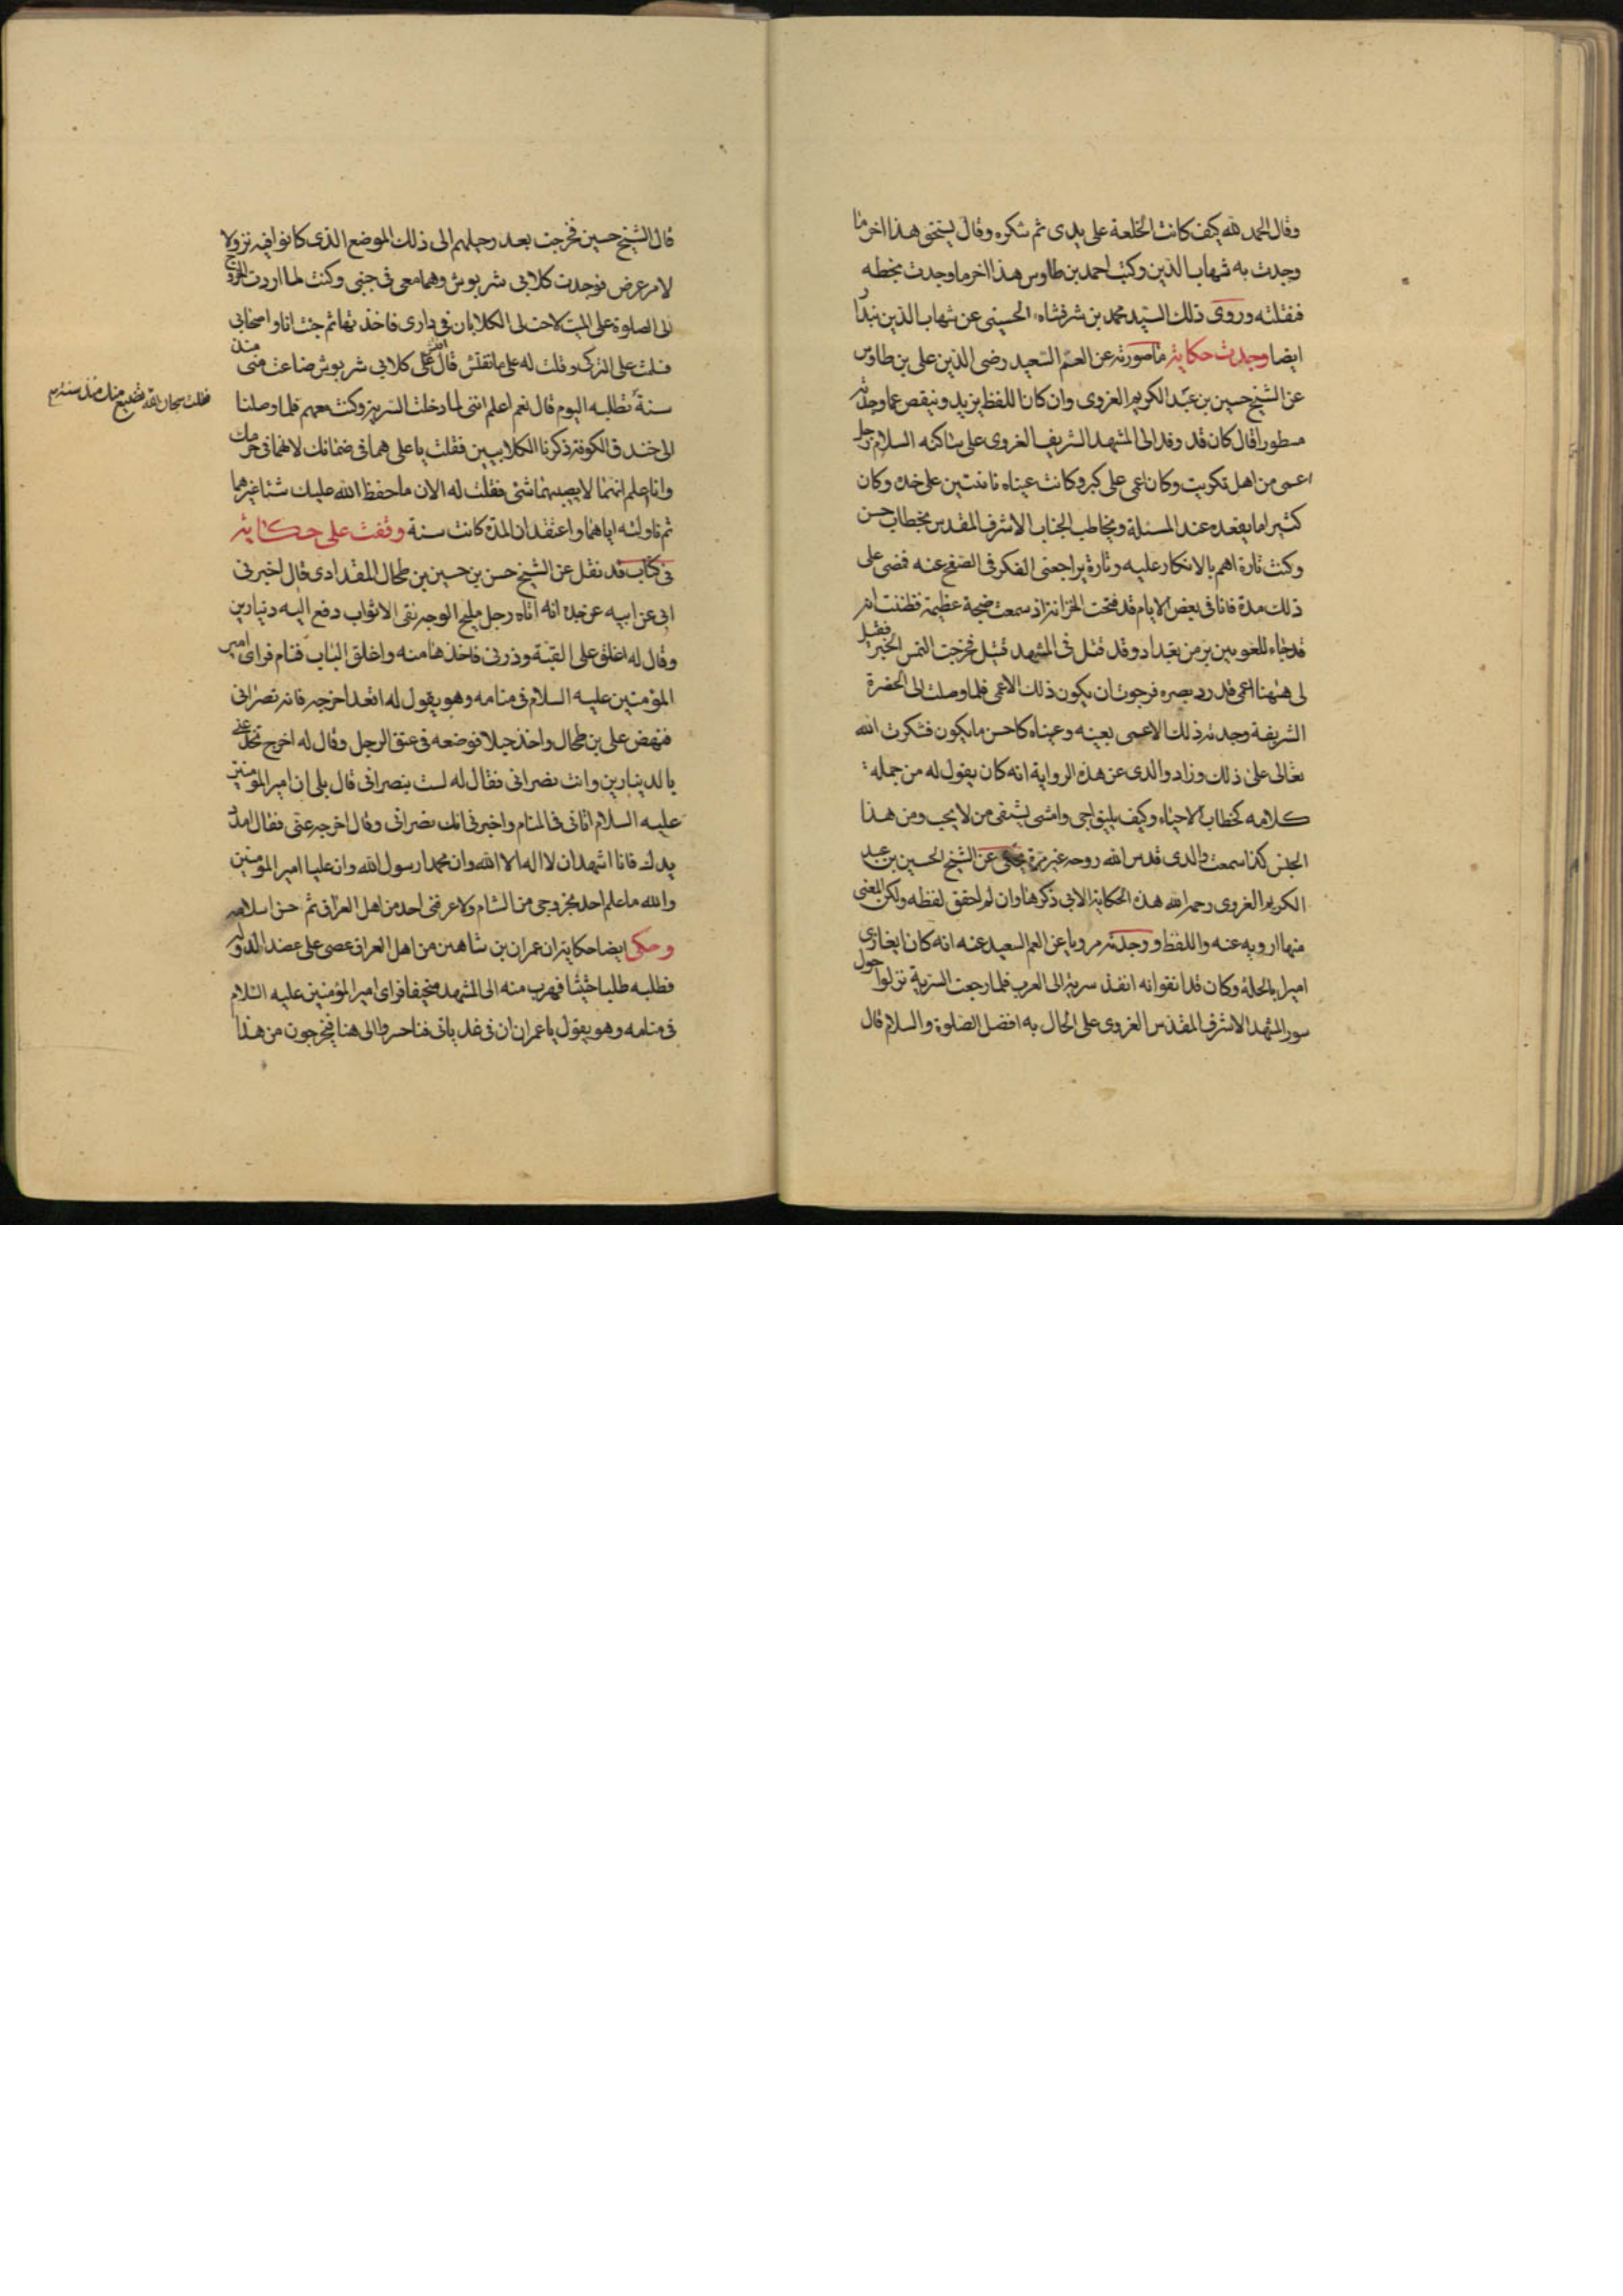 وقال الحمد لله كيف كانت الخلعة على يدى ثم شكره وقال يستحق هذا اخر ما
وجدت به شهاب الدين وكتب احمد بن طاوس هذا اخر ما وجدت بخطه
فنقلته وروى ذلك السيد محمد بن شرفشاه الحسينى عن شهاب الدين بندار
ايضا وجدت حكاية ما صورته عن العم السعيد رضى الدين على بن طاوس
عن الشيخ حسين بن عبد الكريم الغروى وان كان اللفظ يزيد وينقص عما وجدته
مسطورا قال كان قد وفد الى المشهد الشريف الغروى على ساكنه السلام رجل
اعمى من اهل تكريت وكان عمى على كبر وكانت عيناه ناتئتين على خده وكان
كثيرا ما يقعد عند المسئلة ويخاطب الجناب الاشرف المقدس بخطاب حسن
وكنت تارة اهم بالانكار عليه وتارة يراجعنى الفكر فى الصفح عنه فمضى على
ذلك مدة فانا فى بعض الايام قد فتحت الخزانة اذ سمعت ضجة عظيمة فظننت انه
قد جاء للعلويين بر من بغداد وقد قتل فى المشهد قتيل فخرجت التمس الخبر فقيل
لى ههنا اعمى قد رد بصره فرجوت ان يكون ذلك الاعمى فلما وصلت الى الحضرة
الشريفة وجدته ذلك الاعمى بعينه وعيناه كاحسن ما يكون فشكرت الله
تعالى على ذلك وزاد والدى عن هذه الرواية انه كان يقول له من جملة
كلامه كخطاب الاحياء وكيف يليق اجى وامشى يشتفى من لا يحب ومن هذا
الجنس كذا سمعت والدى قدس الله روحه غير مرة يحكى عن الشيخ الحسين بن عبد
الكريم الغروى رحمه الله هذه الحكاية الاتى ذكرها وان لم احقق لفظه ولكن المعنى
منها ارويه عنه واللفظ وجدته مرويا عن العم السعيد عنه انه كان ايلغازى
اميرا بالحلة وكان قد اتفق انه انفذ سرية الى العرب فلما رجعت السرية نزلوا حول
سور المشهد الاشرف المقدس الغروى على الحال به افضل الصلوة والسلام قال
قال الشيخ حسين فخرجت بعد رحيلهم الى ذلك الموضع الذى كانوا فيه نزولا
لامر عرض فوجدت كلابى شربوش وهما معى فى جنبى وكنت لما اردت الخروج
الى الصلوة على الميت لاحت لى الكلابان فى دارى فاخذتهما ثم جئت انا واصحابى
فسلمت على التركى وقلت له على ما تفتش قال افتش على كلابى شربوش ضاعت منى منذ
سنة تطلبه اليوم قال نعم اعلم اننى لما دخلت السرية وكنت معهم فلما وصلنا
فقلت سبحان الله تضيع منك منذ سنة
الى خندق الكوفة ذكرنا الكلابيين فقلت يا على هما فى ضمانك لانهما فى حرمك
وانا اعلم انهما لا يصيبهما شئ فقلت له الان ما حفظ الله عليك شيئا غيرهما
ثم ناولته اياهما واعتقد ان المدة كانت سنة وقفت على حكاية
فى كتاب قد نقل عن الشيخ حسن بن حسين بن طحال المقدادى قال اخبرنى
ابى عن ابيه عن جده انه اتاه رجل مليح الوجه نقى الاثواب دفع اليه دينارين
وقال له اغلق على القبة وذرنى فاخذهما منه واغلق الباب فنام فراى امير
المؤمنين عليه السلام فى منامه وهو يقول له اقعد اخرجه فانه نصرانى
فنهض على بن طحال واخذ حبلا فوضعه فى عنق الرجل وقال له اخرج تخدعنى
بالدينارين وانت نصرانى فقال له لست بنصرانى قال بلى ان امير المؤمنين
عليه السلام اتانى فى المنام واخبرنى انك نصرانى وقال اخرجه عنى فقال امدد
يدك فانا اشهد ان لا اله الا الله وان محمدا رسول الله وان عليا امير المؤمنين
والله ما علم احد بخروجى من الشام ولا عرفنى احد من اهل العراق ثم حسن اسلامه
وحكى ايضا حكاية ان عمران بن شاهين من اهل العراق عصى على عضد الدولة
فطلبه طلبا حثيثا فهرب منه الى المشهد متخفيا فراى امير المؤمنين عليه السلام
فى منامه وهو يقول يا عمران ان فى غد ياتى فناخسرو الى هنا فيخرجون من هذا